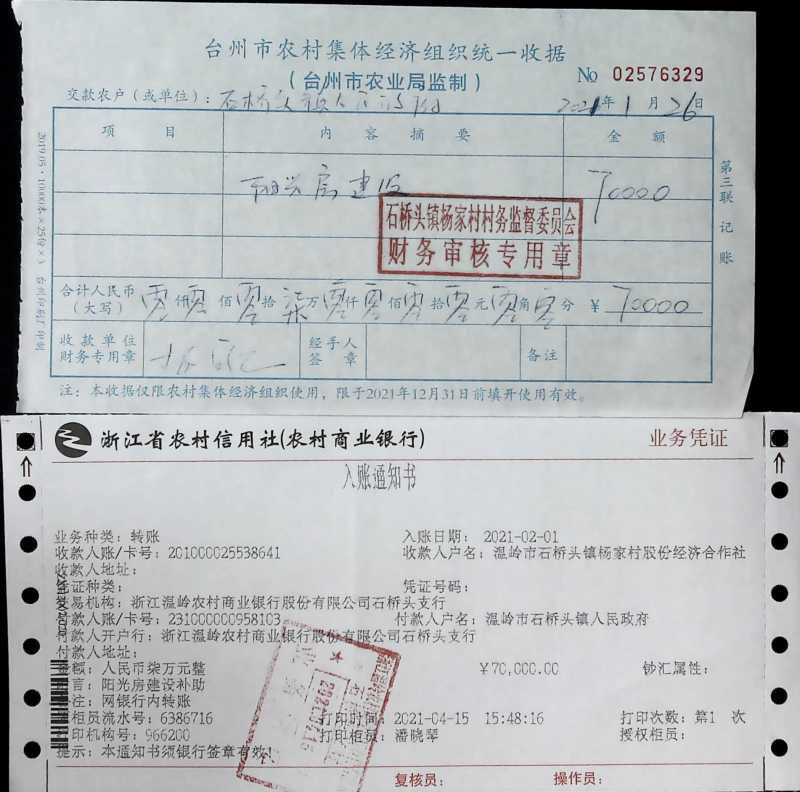 台州市农村集体经济组织统一收据
(台州市农业局监制)
No 02576329
交款农户(或单位): 石桥头镇人民政府
2021年1月26日
项目 内容摘要 金额
阳光房建设 70000
石桥头镇杨家村村务监督委员会
财务审核专用章
合计人民币(大写) 零仟零佰零拾柒万零仟零佰零拾零元零角零分 ¥ 70000
收款单位财务专用章
经手人签章
备注
注:本收据仅限农村集体经济组织使用,限于2021年12月31日前填开使用有效。
第三联 记账
2019.05·10000本×25份×3 台州印刷厂印制
浙江省农村信用社(农村商业银行) 业务凭证
入账通知书
业务种类: 转账 入账日期: 2021-02-01
收款人账/卡号: 201000025538641 收款人户名: 温岭市石桥头镇杨家村股份经济合作社
收款人地址:
凭证种类: 凭证号码:
交易机构: 浙江温岭农村商业银行股份有限公司石桥头支行
付款人账/卡号: 231000000958103 付款人户名: 温岭市石桥头镇人民政府
付款人开户行: 浙江温岭农村商业银行股份有限公司石桥头支行
付款人地址:
金额: 人民币柒万元整 ¥70,000.00 钞汇属性:
附言: 阳光房建设补助
备注: 网银行内转账
柜员流水号: 6386716 打印时间: 2021-04-15 15:48:16 打印次数: 第1 次
打印机构号: 966200 打印柜员: 潘晓琴 授权柜员:
提示: 本通知书须银行签章有效!
复核员: 操作员: